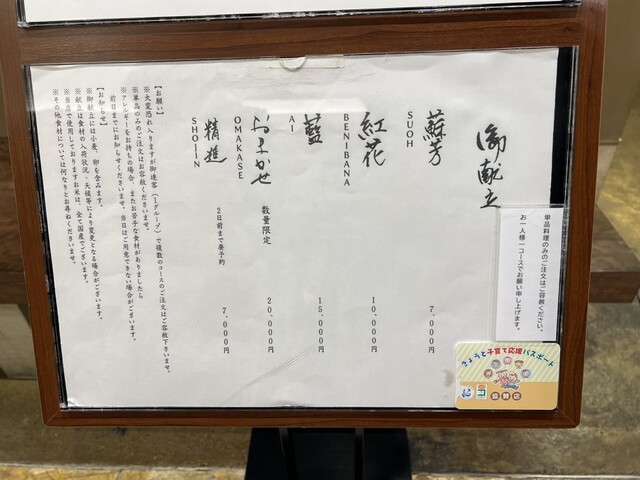 御献立
単品料理のみのご注文はご容赦ください。
お一人様一コースでお願い申し上げます。
蘇芳
SUOH
7,000円
紅花
BENIBANA
10,000円
藍
AI
15,000円
おまかせ
OMAKASE
数量限定
20,000円
精進
SHOJIN
2日前まで要予約
7,000円
【お願い】
※大変恐れ入りますが御連客(1グループ)で複数のコースのご注文はご容赦下さいませ。
※単品のみのご注文はお容赦くださいませ。
※アレルギーをお持ちの場合、またお苦手な食材がありましたら
前日までにお知らせくださいませ。当日はご用意できない場合がございます。
【お知らせ】
※御献立には小麦、卵を含みます。
※献立は食材の入荷状況・天候等により変更となる場合がございます。
※当店で使用しておりますお米は、全て国産でございます。
※その他食材については何なりとお尋ねくださいませ。
きょうと子育て応援パスポート
協賛店